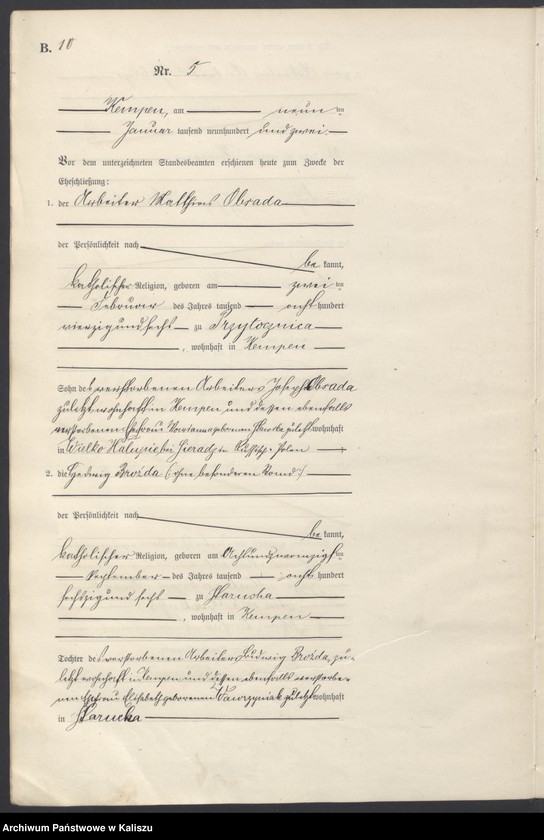 B. 10
Nr. 5
Kempen, am neun ten
Januar tausend neunhundert und zwei.
Vor dem unterzeichneten Standesbeamten erschienen heute zum Zwecke der
Eheschließung:
1. der Arbeiter Matthias Obrada
der Persönlichkeit nach
be kannt,
katholischer Religion, geboren am zwei ten
Februar des Jahres tausend acht hundert
vierzig und sechs zu Przytocznica
, wohnhaft in Kempen
Sohn des verstorbenen Arbeiters Joseph Obrada
zuletzt wohnhaft in Kempen und dessen ebenfalls
verstorbenen Ehefrau Marianna geborenen zuletzt wohnhaft
in Wielko bei Sieradz in Russisch-Polen
2. die Hedwig Brożda (ohne besonderen Stand)
der Persönlichkeit nach
be kannt,
katholischer Religion, geboren am Achtundzwanzigs ten
September des Jahres tausend acht hundert
sechszig und sechs zu
, wohnhaft in Kempen
Tochter des verstorbenen Arbeiters Ludwig Brożda, zu-
letzt wohnhaft in Kempen und dessen ebenfalls verstorbe-
nen Ehefrau Elisabeth geborenen Wawrzyniak zuletzt wohnhaft
in
Archiwum Państwowe w Kaliszu